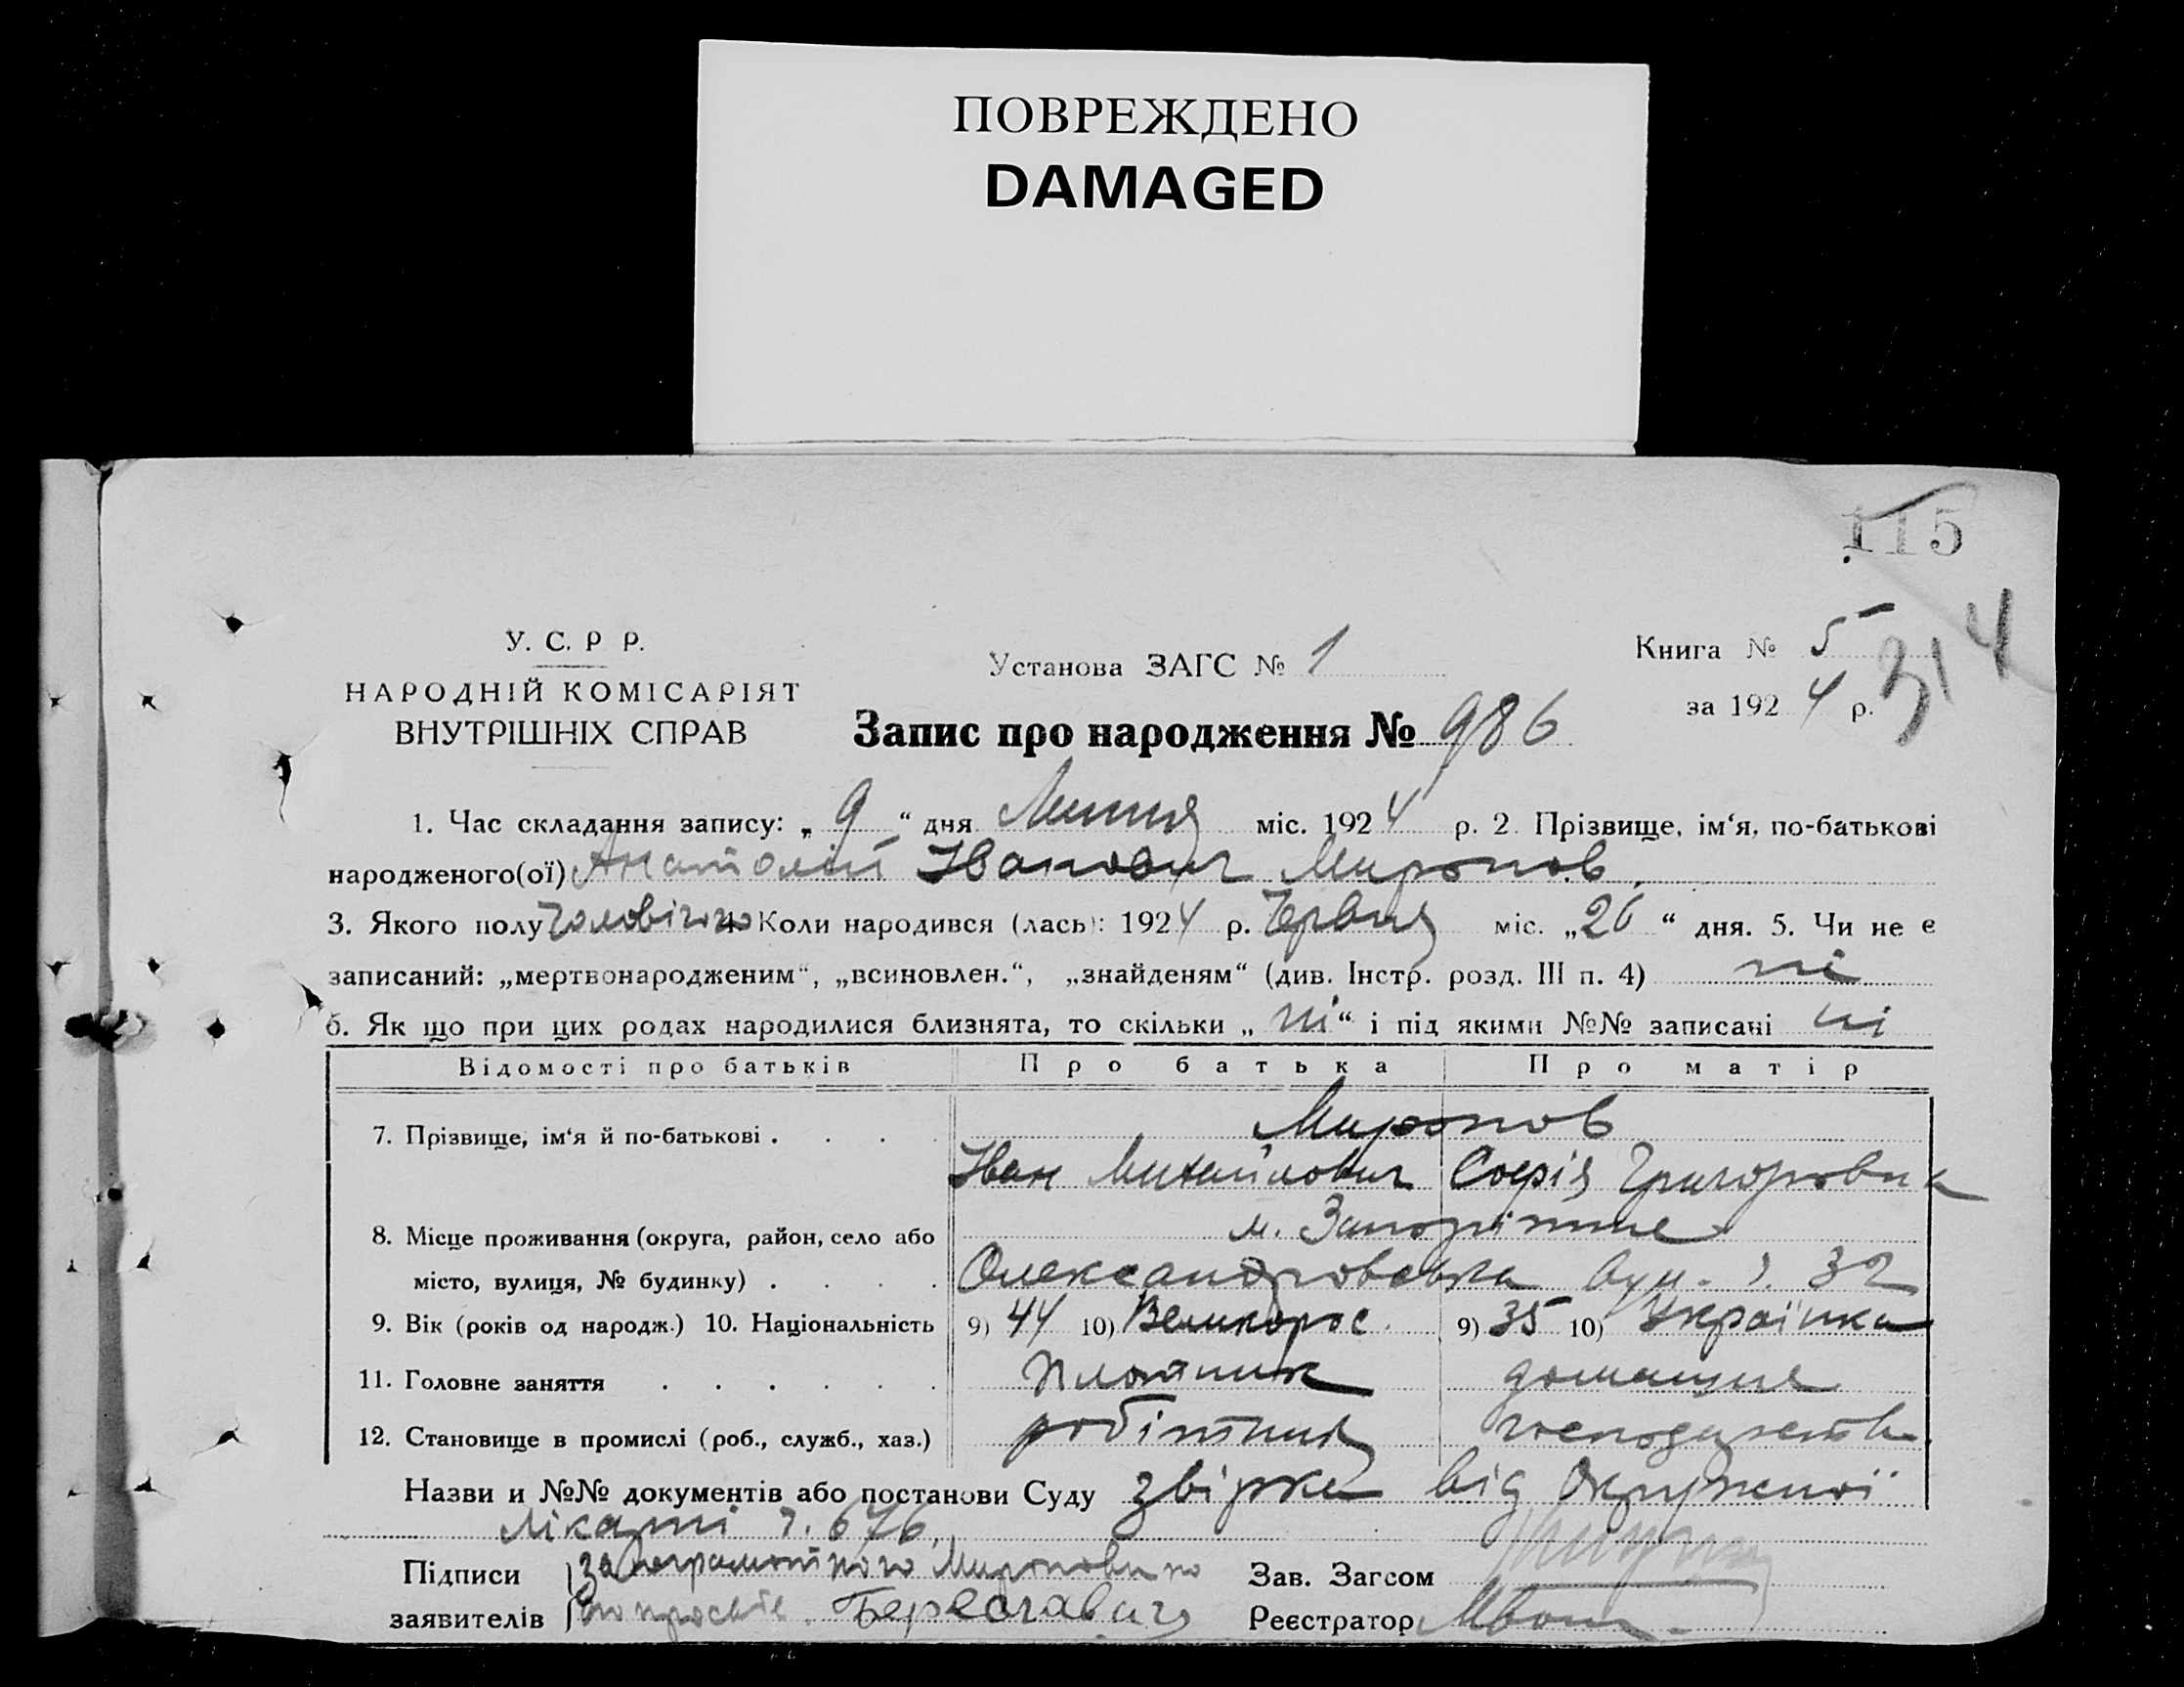 ПОВРЕЖДЕНО
DAMAGED
115
314
У. С. Р Р.
НАРОДНІЙ КОМІСАРІЯТ
ВНУТРІШНІХ СПРАВ
Установа ЗАГС № 1
Книга № 5
за 1924 р.
Запис про народження № 986
1. Час складання запису: „ 9 “ дня Липня міс. 1924 р. 2. Прізвище, ім‘я, по-батькові
народженого(ої) Анатолій Іванович Миронов
3. Якого полу чоловічого 4. Коли народився (лась): 1924 р. Червня міс. „26“ дня. 5. Чи не є
записаний: „мертвонародженим“, „всиновлен.“, „знайденям“ (див. Інстр. розд. III п. 4) ні
6. Як що при цих родах народилися близнята, то скільки „ ні “ і під якими №№ записані ні
Відомості про батьків Про батька Про матір
7. Прізвище, ім‘я й по-батькові . . . . Миронов
Іван Михайлович Софія Григоровна
8. Місце проживання (округа, район, село або м.
місто, вулиця, № будинку) . . . . Олександровська вул. 32
9. Вік (років од народж.) 10. Національність 9) 44 10) Великорос 9) 35 10) Українка
11. Головне заняття . . . . . . Плотник домашнє
12. Становище в промислі (роб., служб., хаз.) робітник
Назви и №№ документів або постанови Суду від Окружної
ч. 676
Підписи за неграмотного
заявителів
Зав. Загсом
Реєстратор